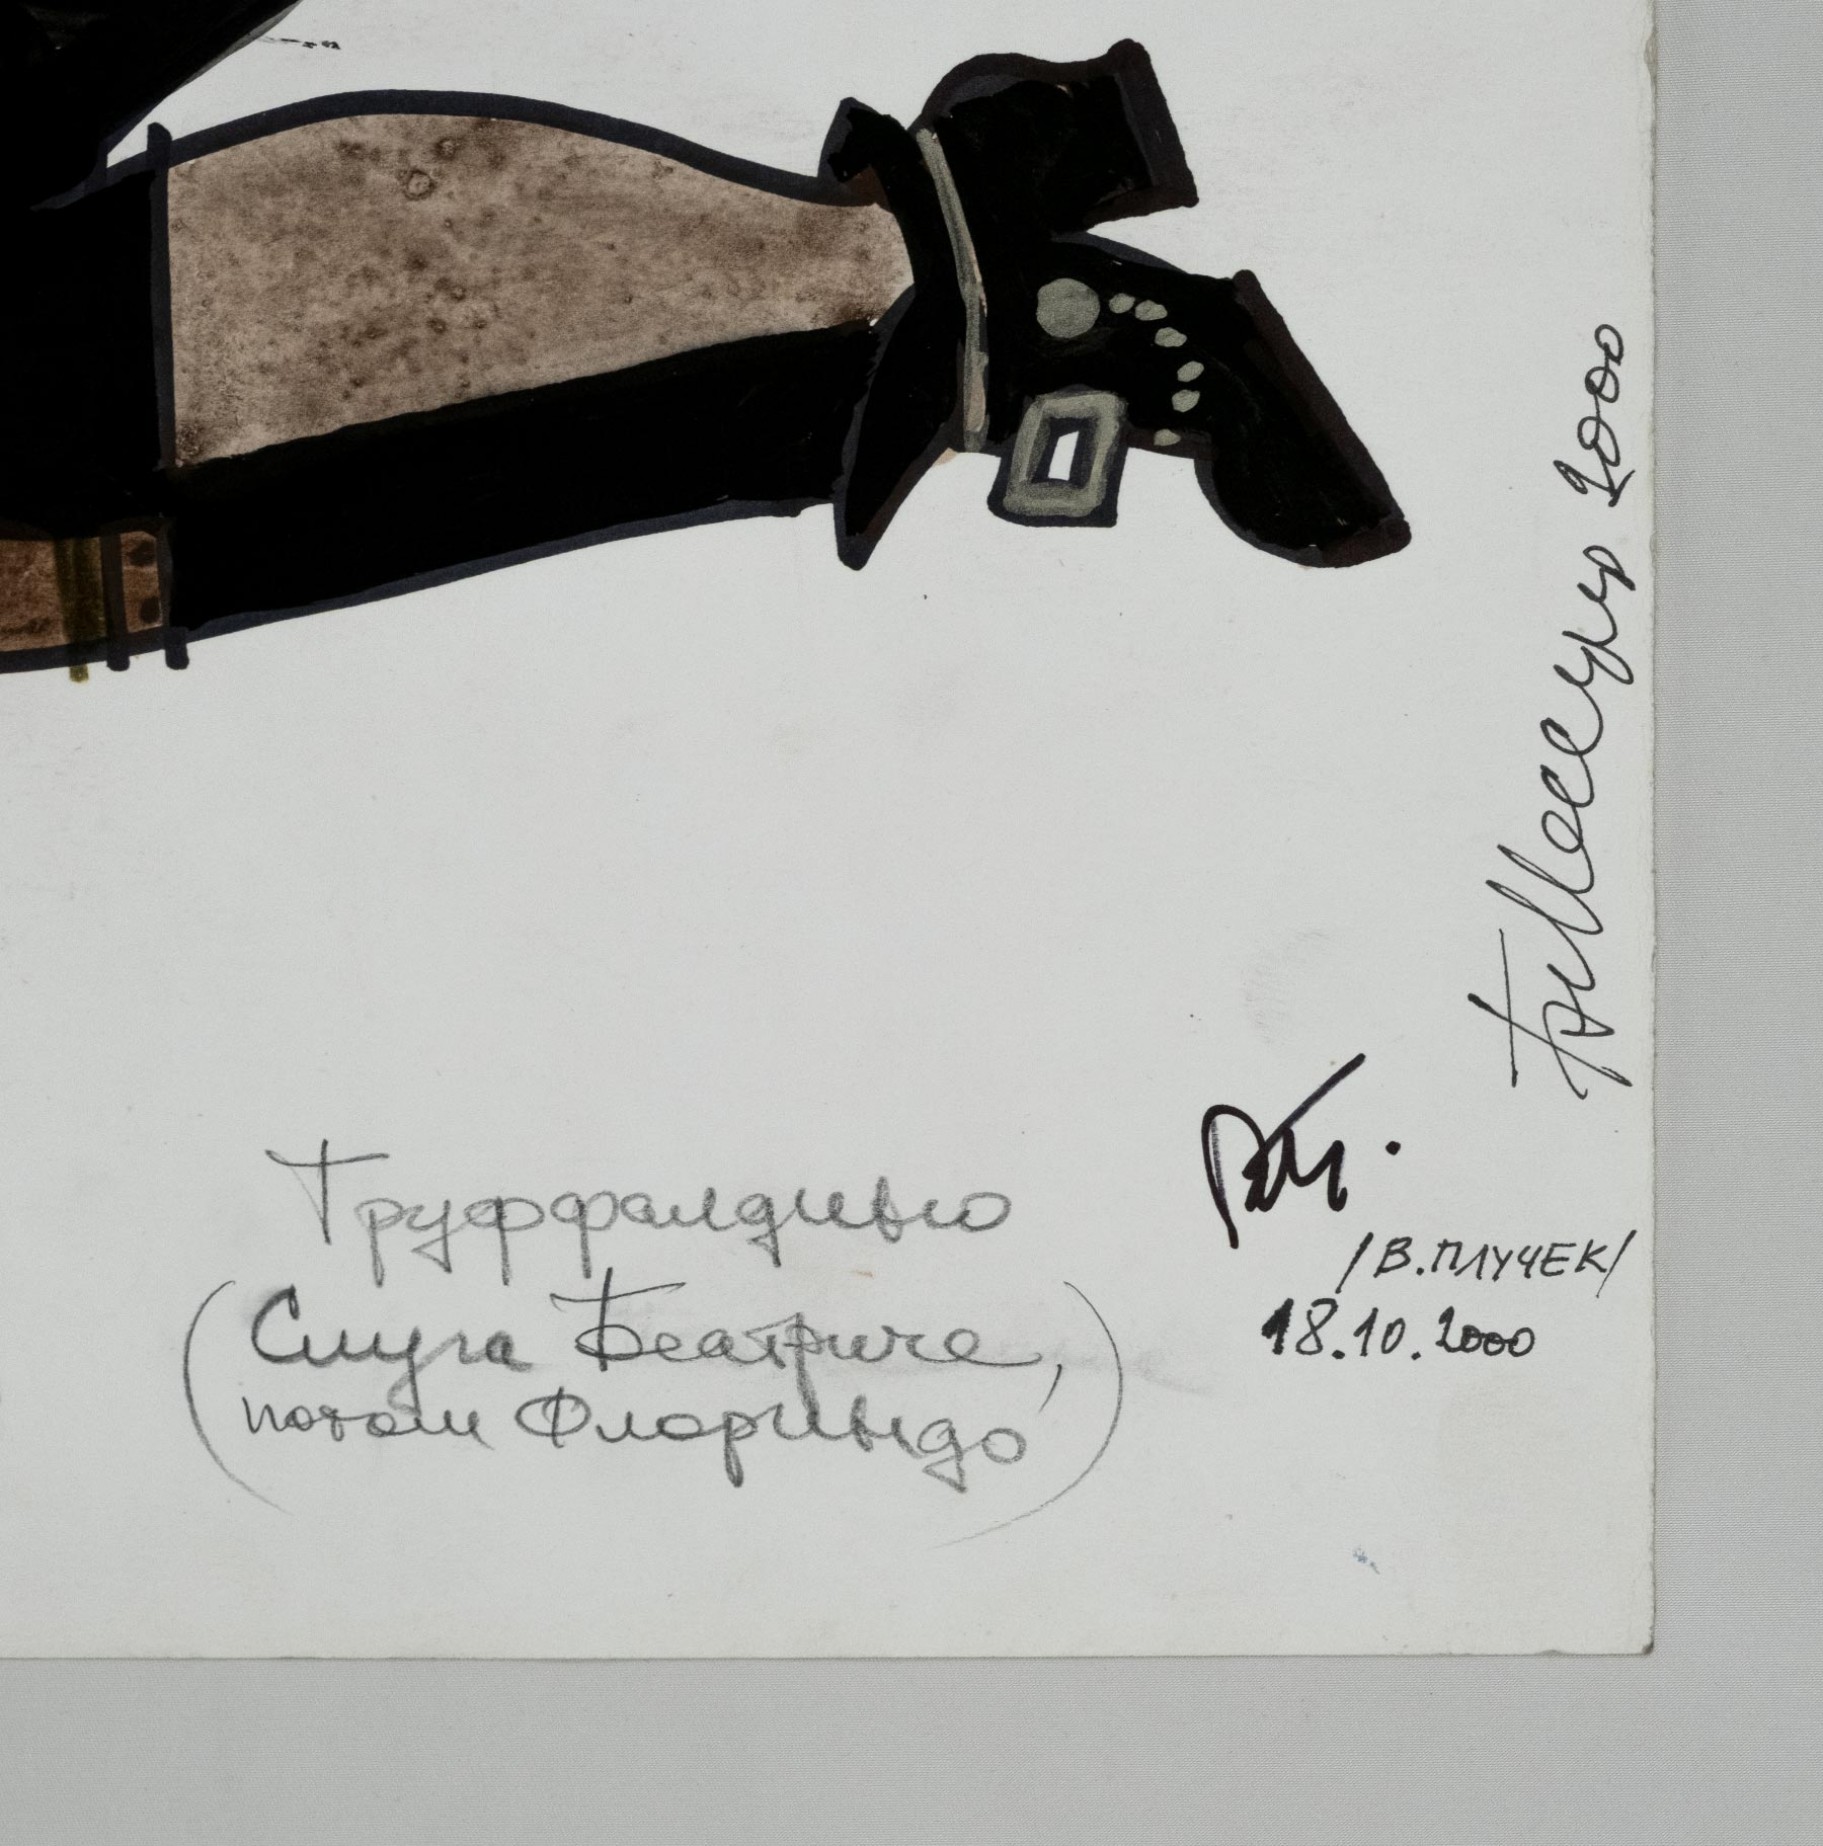 Труффальдино
(Слуга Беатриче,
потом Флориндо)
/В.ПЛУЧЕК/
18.10.2000
Б. Мессерер 2000